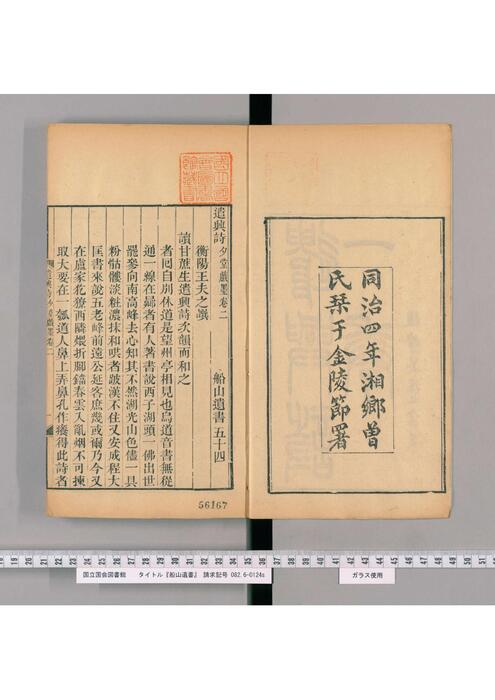 同治四年湘鄉曾
氏栞于金陵節署
遣興詩 夕堂戲墨卷二 船山遺書五十四
衡陽王夫之譔
讀甘蔗生遣興詩次韻而和之
者囘自別休道是望州亭相見也爲道音書無從
通一線在歸者有人著書說西子湖頭一佛出世
罷參向南高峰去心知其不然湖光山色儘一具
粉骷髏淡粧濃抹和哄者跛漢不住又安成程大
匡書來說五老峰前遠公延客庶幾或爾乃今又
在盧家犵獠西隣煨折腳鐺春雲入亂烟不可揀
取大要在一瓠道人鼻上弄鼻孔作癢得此詩者
國立國會圖書館藏書
56167
国立国会図書館 タイトル『船山遺書』 請求記号 082.6-0124s
ガラス使用